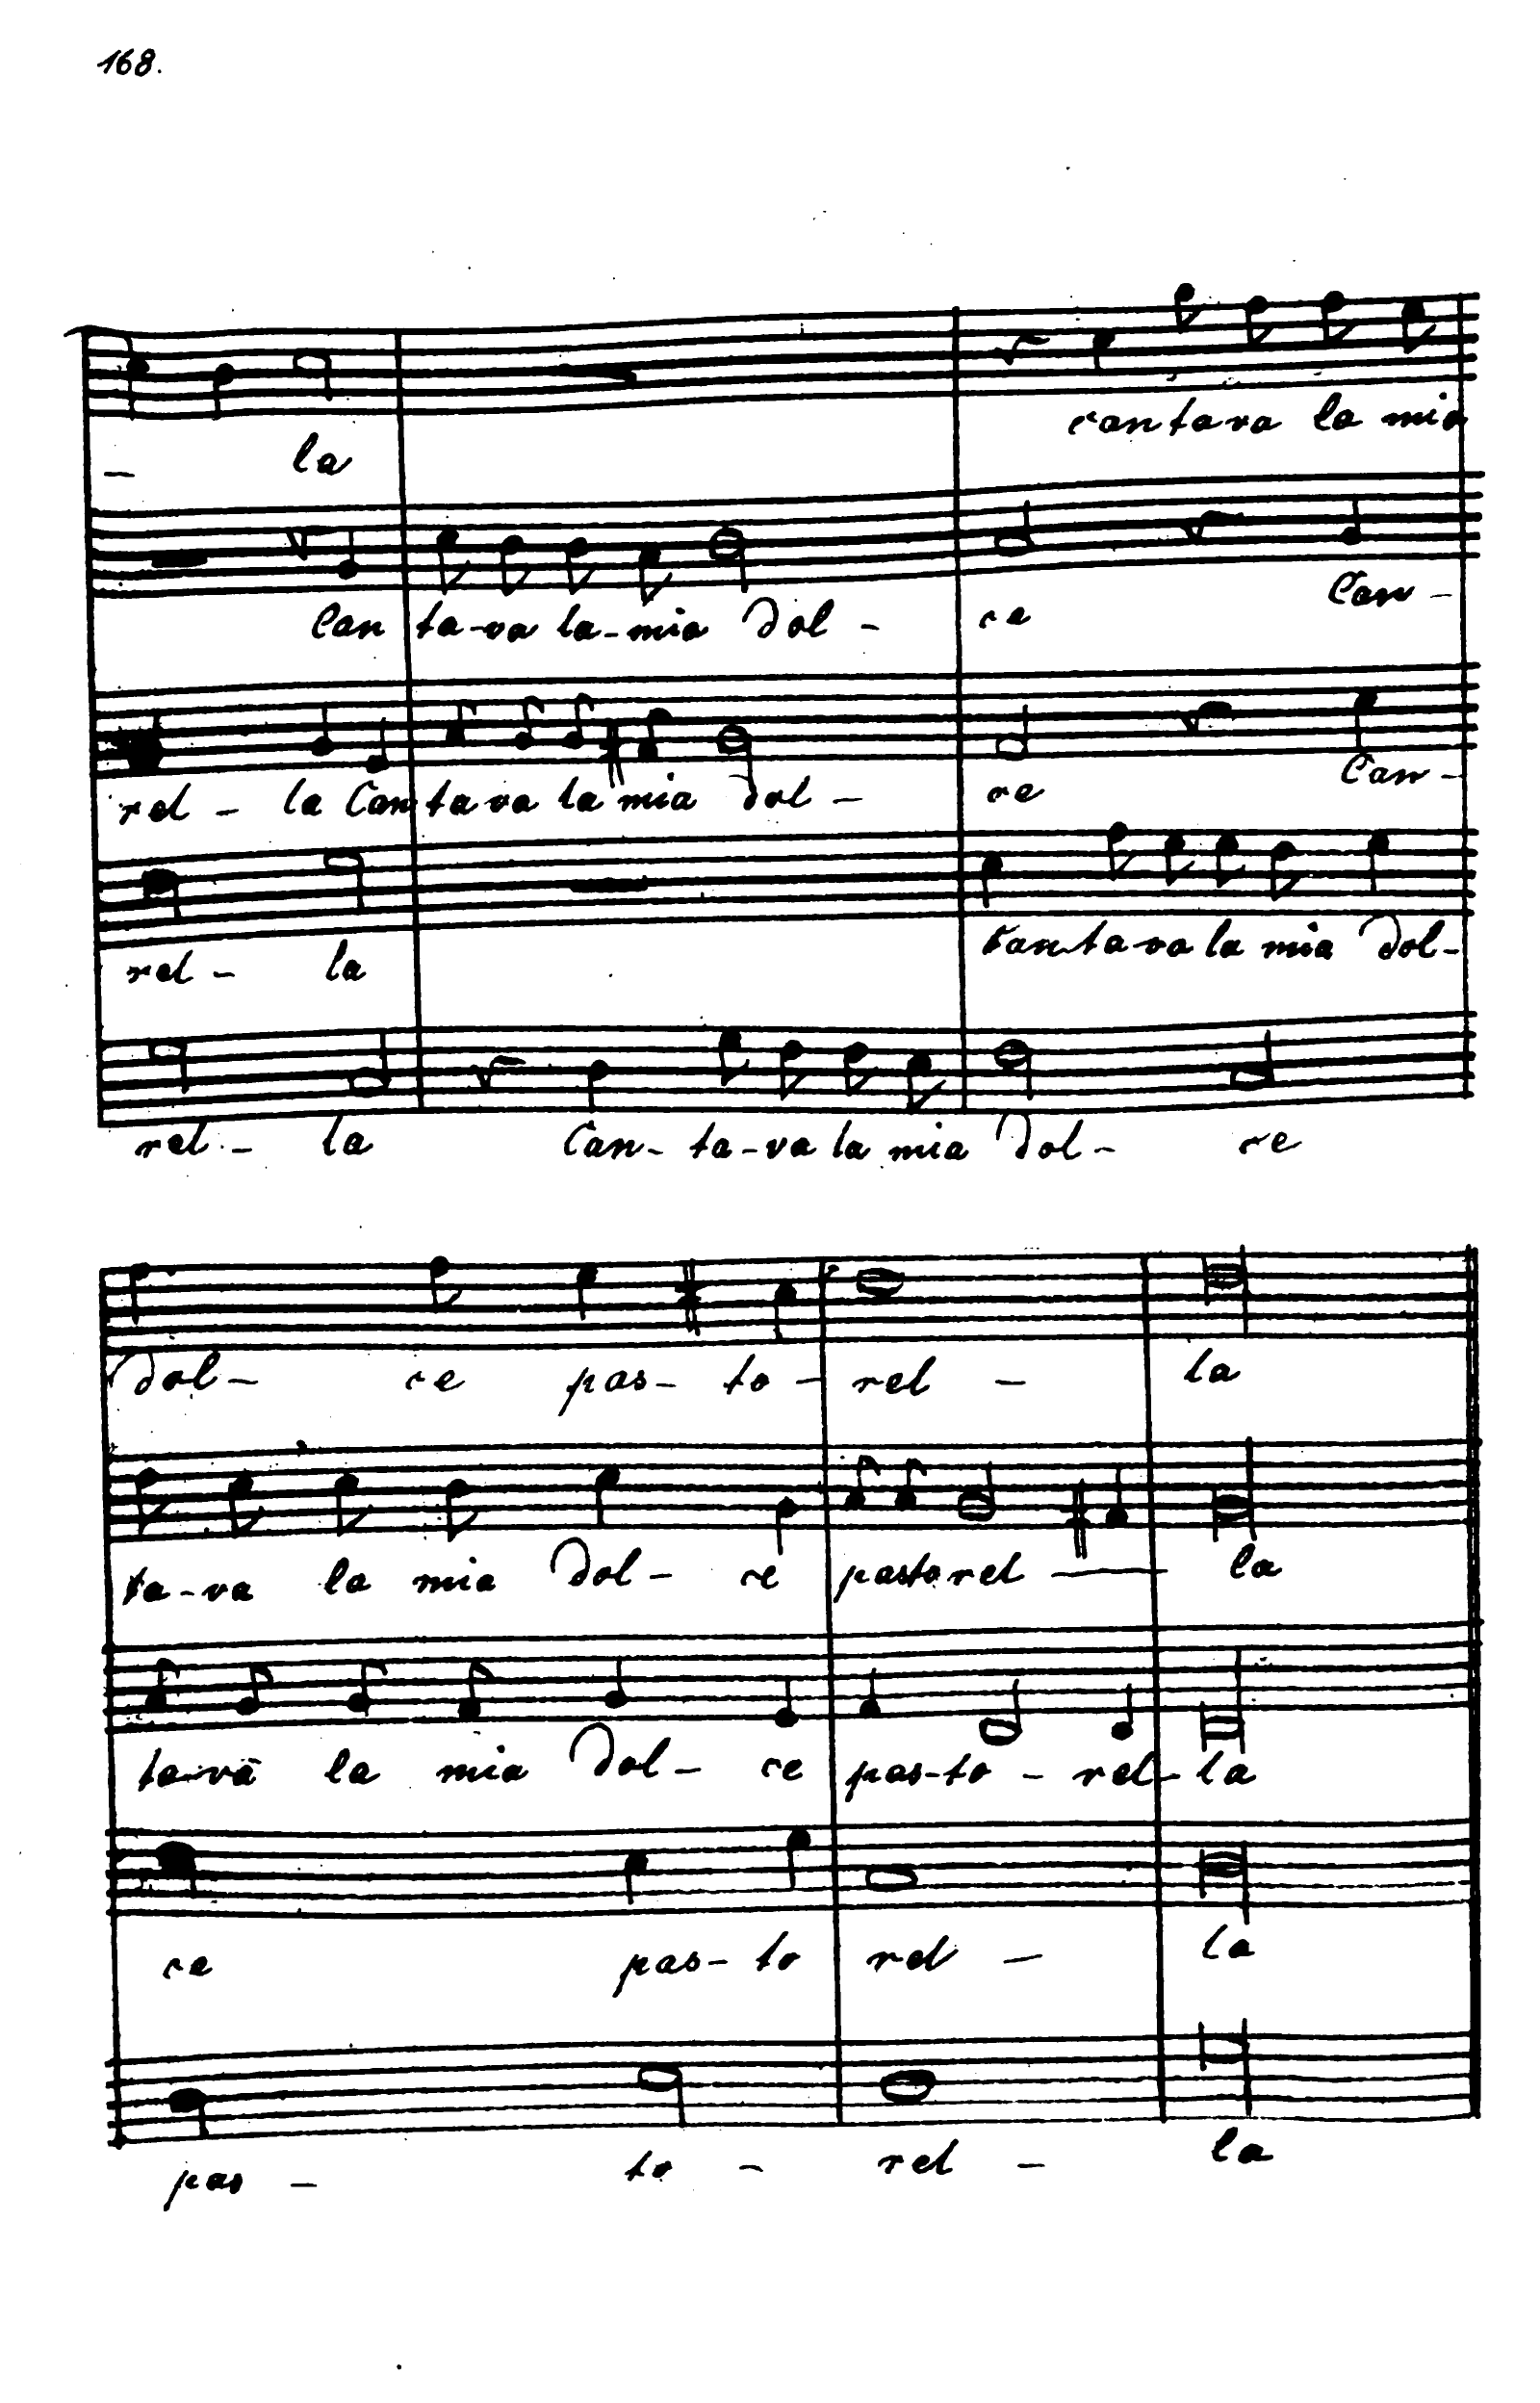 168.
– la cantava la mia
Can ta-va la-mia dol – ce Can –
rel – la Can ta va la mia dol – ce Can –
rel – la Cantava la mia dol-
rel – la Can- ta-va la mia dol – ce
dol – ce pas- to – rel – la
ta-va la mia dol – ce pastorel — la
ta-va la mia dol – ce pas-to – rel – la
ce pas- to rel – la
pas – to – rel – la